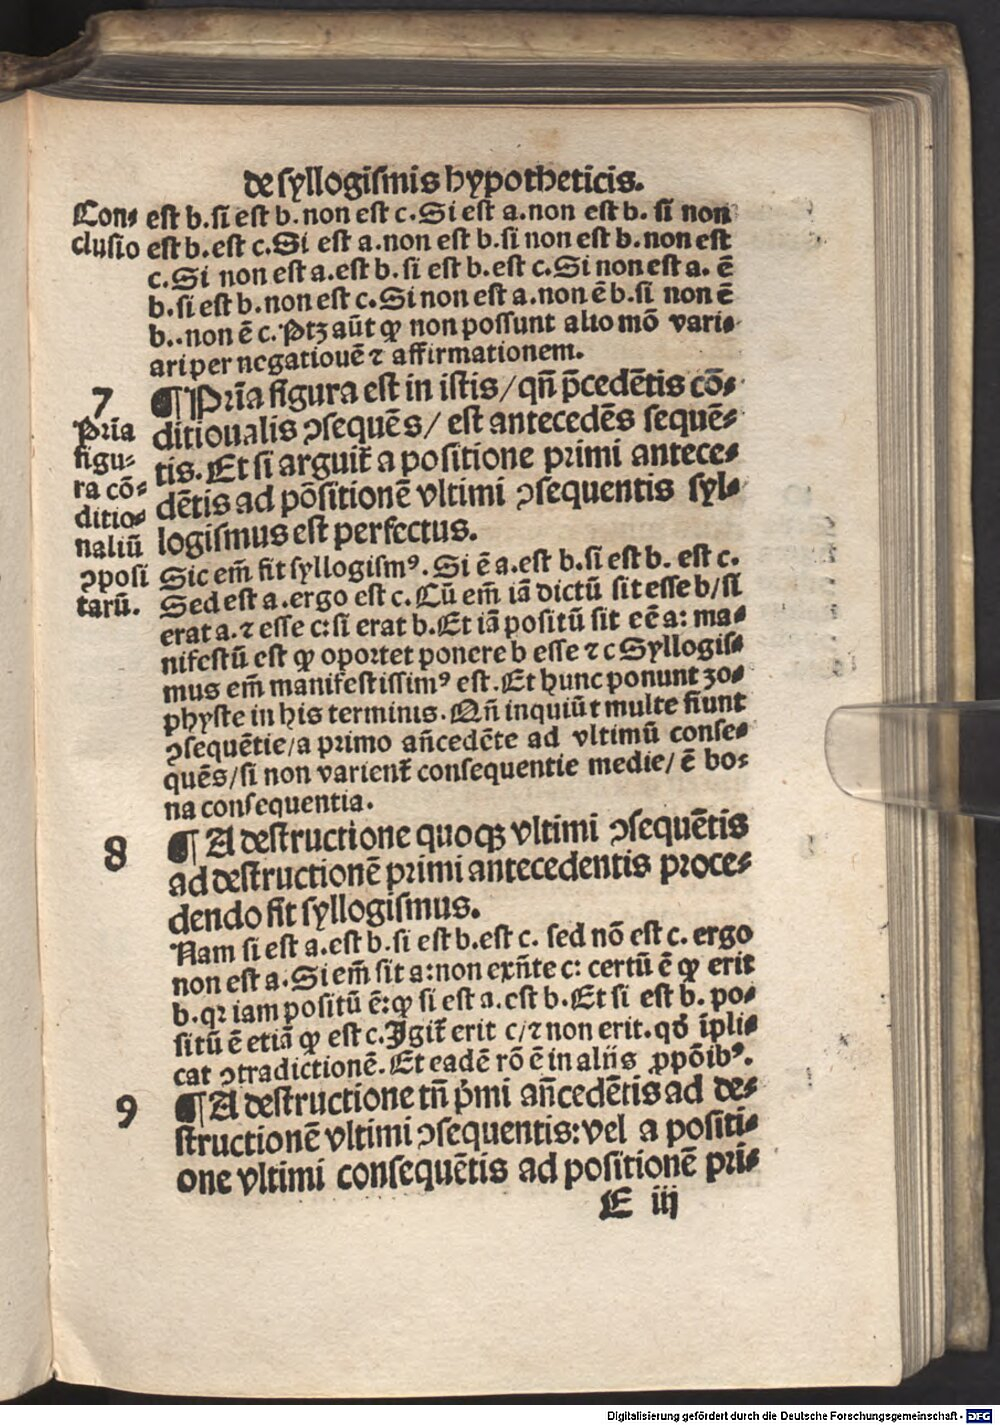 de syllogismis hypotheticis.
Con⸗
clusio
est b.si est b. non est c. Si est a.non est b. si non
est b. est c. Si est a.non est b.si non est b. non est
c. Si non est a.est b. si est b. est c. Si non est a. ē
b.si est b. non est c. Si non est a.non ē b.si non ē
b..non ē c. Ptꝫ aūt ꝙ non possunt alio mō vari⸗
ari per negatiouē ⁊ affirmationem.
7
Pr̄ia
figu⸗
ra cō⸗
ditio⸗
naliū
ↄposi
tarū.
¶ Pr̄ia figura est in istis/ qn̄ p̄cedētis cō⸗
ditioualis ↄsequēs/ est antecedēs sequē⸗
tis. Et si arguit̄ a positione primi antece⸗
dētis ad pōsitionē vltimi ↄsequentis syl⸗
logismus est perfectus.
Sic em̄ fit syllogismꝰ. Si ē a.est b.si est b. est c.
Sed est a.ergo est c. Cū em̄ iā dictū sit esse b/ si
erat a. ⁊ esse c: si erat b. Et iā positū sit eē a: ma⸗
nifestū est ꝙ oportet ponere b esse ⁊ c Syllogis⸗
mus em̄ manifestissimꝰ est. Et hunc ponunt zo⸗
physte in his terminis. Qn̄ inquiūt multe fiunt
ↄsequētie/ a primo an̄cedēte ad vltimū conse⸗
quēs/ si non varient̄ consequentie medie/ ē bo⸗
na consequentia.
8
¶ A destructione quoqꝫ vltimi ↄsequētis
ad destructionē primi antecedentis proce⸗
dendo fit syllogismus.
Nam si est a.est b.si est b.est c. sed nō est c. ergo
non est a. Si em̄ sit a: non exn̄te c: certū ē ꝙ erit
b. qꝛ iam positū ē: ꝙ si est a.est b. Et si est b. po⸗
sitū ē etiā ꝙ est c. Igit̄ erit c/ ⁊ non erit. qđ īpli⸗
cat ↄtradictionē. Et eadē rō ē in aliis ꝓpōibꝰ.
9
¶ A destructione tn̄ p̄mi an̄cedētis ad de⸗
structionē vltimi ↄsequentis: vel a positi⸗
one vltimi consequētis ad positionē pri⸗
E iij
Digitalisierung gefördert durch die Deutsche Forschungsgemeinschaft - DFG